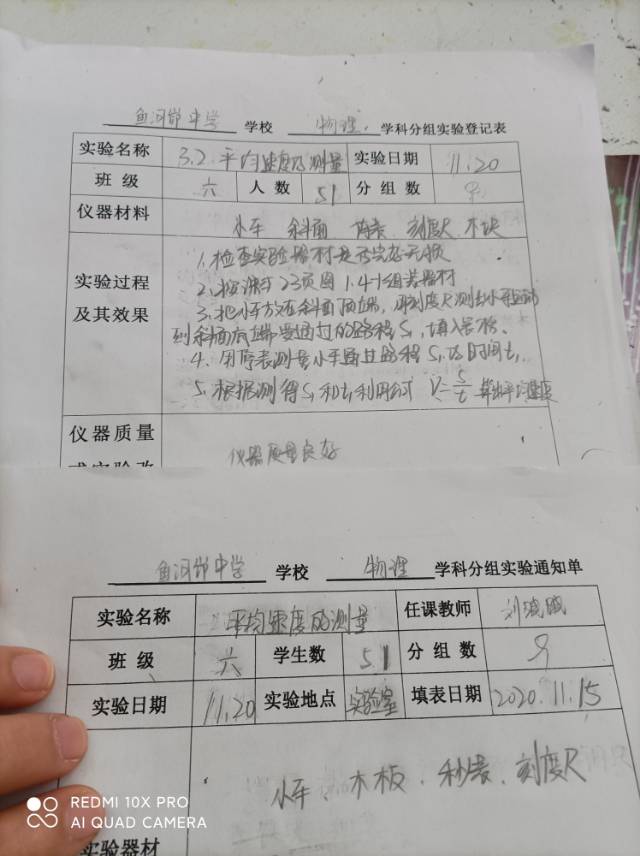 鱼河峁中学 学校 物理 学科分组实验登记表
实验名称 3.2 平均速度的测量 实验日期 11.20
班 级 六 人 数 51 分 组 数 9
仪器材料 小车 斜面 刻度尺 木块
实验过程及其效果
1. 检查实验器材是否完好无损
2. 按课本23页图1.4-1组装器材
3. 把小车放在斜面顶端，用刻度尺测出小车
到斜面底端要通过的路程S1，填入表格。
4. 用停表测量小车通过路程S1的时间t1
5. 根据测得S1和t1利用公式 V=s/t 算出平均速度
仪器质量 仪器质量良好
鱼河峁中学 学校 物理 学科分组实验通知单
实验名称 平均速度的测量 任课教师 刘
班 级 六 学生数 51 分 组 数 9
实验日期 11.20 实验地点 实验室 填表日期 2020.11.15
小车、木板、秒表、刻度尺
实验器材
REDMI 10X PRO
AI QUAD CAMERA